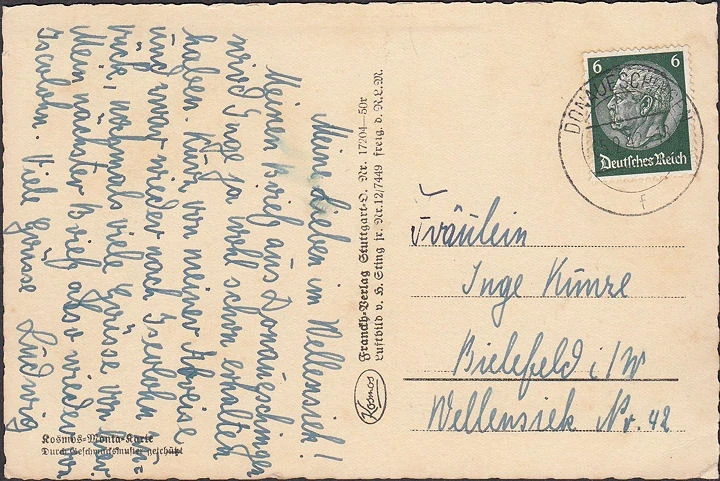 Meine Lieben in Wellensiek!
Meinen Brief aus Donaueschingen
wird Inge ja wohl schon erhalten
haben. Kurz vor meiner Abreise
und zwar wieder nach Iserlohn zu-
rück, nochmals viele Grüsse von hier.
Mein nächster Brief also wieder von
Iserlohn. Viele Grüsse Ludwig
Kosmos-Monta-Karte
Durch Geschmacksmuster geschützt
Franckh-Verlag Stuttgart-O. Nr. 17204—50r
Luftbild v. H. Sting jr. Nr. 12/7449 freig. d. R.L.M.
Kosmos
6 6
Deutsches Reich
DONAUESCHINGEN
f
Fräulein
Inge Kunze
Bielefeld i/W
Wellensiek Nr. 42